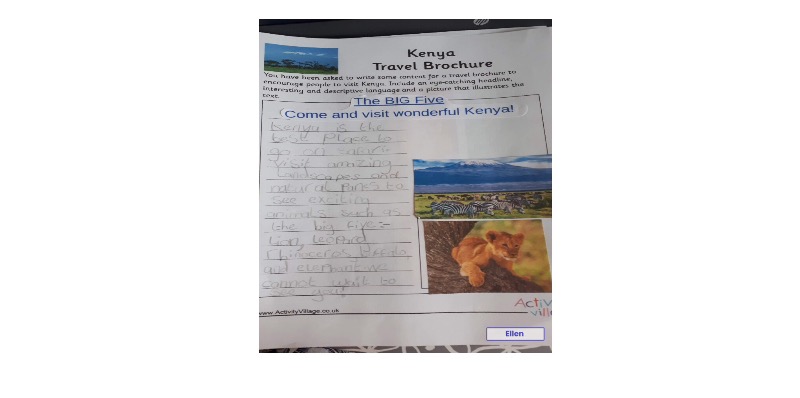 Kenya
Travel Brochure
You have been asked to write some content for a travel brochure to
encourage people to visit Kenya. Include an eye-catching headline,
interesting and descriptive language and a picture that illustrates the
text.
The BIG Five
Come and visit wonderful Kenya!
Kenya is the
best Place to
go on safari
Visit amazing
landscapes and
natural Parks to
see exciting
animals such as
the big five:-
Lion, Leopard
Rhinoceros Buffalo
and elephant we
cannot wait to
see you!
www.ActivityVillage.co.uk
Activ
villa
Ellen